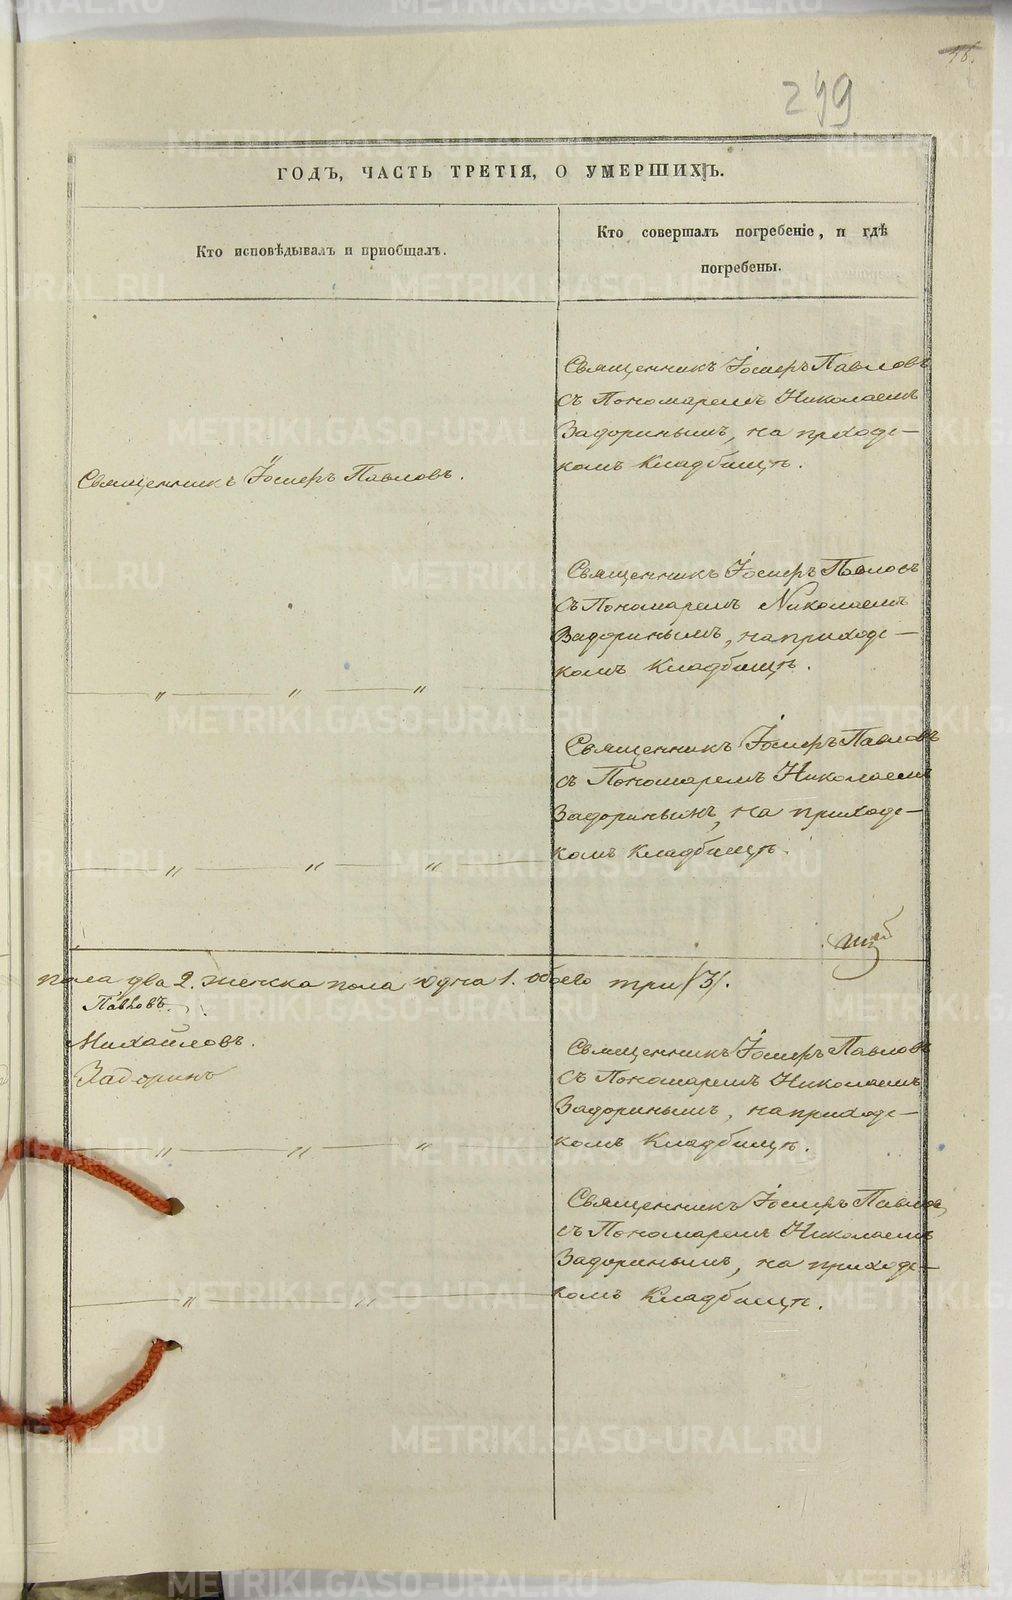 18.
249
ГОДЪ, ЧАСТЬ ТРЕТІЯ, О УМЕРШИХЪ.
Кто исповѣдывалъ и приобщалъ.
Кто совершалъ погребеніе, и гдѣ
погребены.
Священникъ Іосифъ Павловъ
съ Пономаремъ Николаемъ
Задоринымъ, на приходс-
комъ Кладбищѣ.
Священникъ Іосифъ Павловъ.
Священникъ Іосифъ Павловъ
съ Пономаремъ Николаемъ
Задоринымъ, на приходс-
комъ Кладбищѣ.
— „ — „ — „
Священникъ Іосифъ Павловъ
съ Пономаремъ Николаемъ
Задоринымъ, на приходс-
комъ Кладбищѣ.
— „ — „ — „
пола два 2. женска пола одна 1. обоего три /3/.
Павловъ.
Михайловъ.
Задоринъ
Священникъ Іосифъ Павловъ
съ Пономаремъ Николаемъ
Задоринымъ, на приходс-
комъ Кладбищѣ.
— „ — „ — „
Священникъ Іосифъ Павловъ
съ Пономаремъ Николаемъ
Задоринымъ, на приходс-
комъ Кладбищѣ.
— „ — „
METRIKI.GASO-URAL.RU